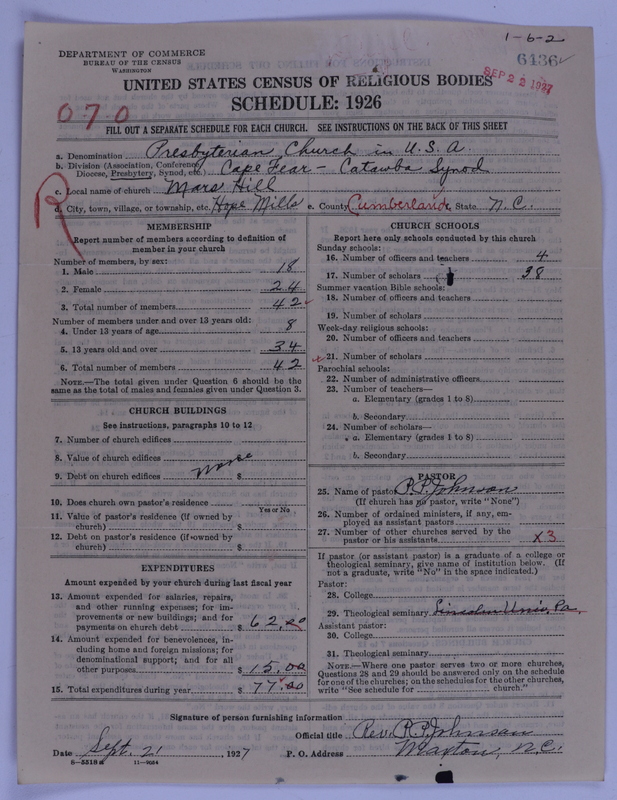 1-6-2
DEPARTMENT OF COMMERCE
BUREAU OF THE CENSUS
WASHINGTON
6436
SEP 22 1927
UNITED STATES CENSUS OF RELIGIOUS BODIES
SCHEDULE: 1926
070
FILL OUT A SEPARATE SCHEDULE FOR EACH CHURCH. SEE INSTRUCTIONS ON THE BACK OF THIS SHEET
a. Denomination Presbyterian Church in U.S.A.
b. Division (Association, Conference, Diocese, Presbytery, Synod, etc.) Cape Fear - Catawba Synod
c. Local name of church Mars Hill
R
d. City, town, village, or township, etc. Hope Mills e. County Cumberland, State N.C.
MEMBERSHIP
Report number of members according to definition of
member in your church
Number of members, by sex:
1. Male 18
2. Female 24
3. Total number of members 42
Number of members under and over 13 years old:
4. Under 13 years of age 8
5. 13 years old and over 34
6. Total number of members 42
NOTE.—The total given under Question 6 should be
the same as the total of males and females given under Question 3.
CHURCH BUILDINGS
See instructions, paragraphs 10 to 12
7. Number of church edifices
8. Value of church edifices
9. Debt on church edifices $ None
10. Does church own pastor's residence?
Yes or No
11. Value of pastor's residence (if owned by
church) $
12. Debt on pastor's residence (if owned by
church) $
EXPENDITURES
Amount expended by your church during last fiscal year
13. Amount expended for salaries, repairs,
and other running expenses; for im-
provements or new buildings; and for
payments on church debt $ 62.00
14. Amount expended for benevolences, in-
cluding home and foreign missions; for
denominational support; and for all
other purposes $ 15.00
15. Total expenditures during year $ 77.00
CHURCH SCHOOLS
Report here only schools conducted by this church
Sunday schools:
16. Number of officers and teachers 4
17. Number of scholars 38
Summer vacation Bible schools:
18. Number of officers and teachers
19. Number of scholars
Week-day religious schools:
20. Number of officers and teachers
21. Number of scholars
Parochial schools:
22. Number of administrative officers
23. Number of teachers—
a. Elementary (grades 1 to 8)
b. Secondary
24. Number of scholars—
a. Elementary (grades 1 to 8)
b. Secondary
PASTOR
25. Name of pastor R.P. Johnson
(If church has no pastor, write "None")
26. Number of ordained ministers, if any, em-
ployed as assistant pastors
27. Number of other churches served by the
pastor or his assistants x3
If pastor (or assistant pastor) is a graduate of a college or
theological seminary, give name of institution below. (If
not a graduate, write "No" in the space indicated.)
Pastor:
28. College
29. Theological seminary Lincoln Univ. Pa.
Assistant pastor:
30. College
31. Theological seminary
NOTE.—Where one pastor serves two or more churches,
Questions 28 and 29 should be answered only on the schedule
for one of the churches; on the schedules for the other churches,
write "See schedule for church."
Signature of person furnishing information
Official title Rev. R.P. Johnson
Date Sept. 21 1927 P. O. Address Maxton, N.C.
8-5518a 11-9034